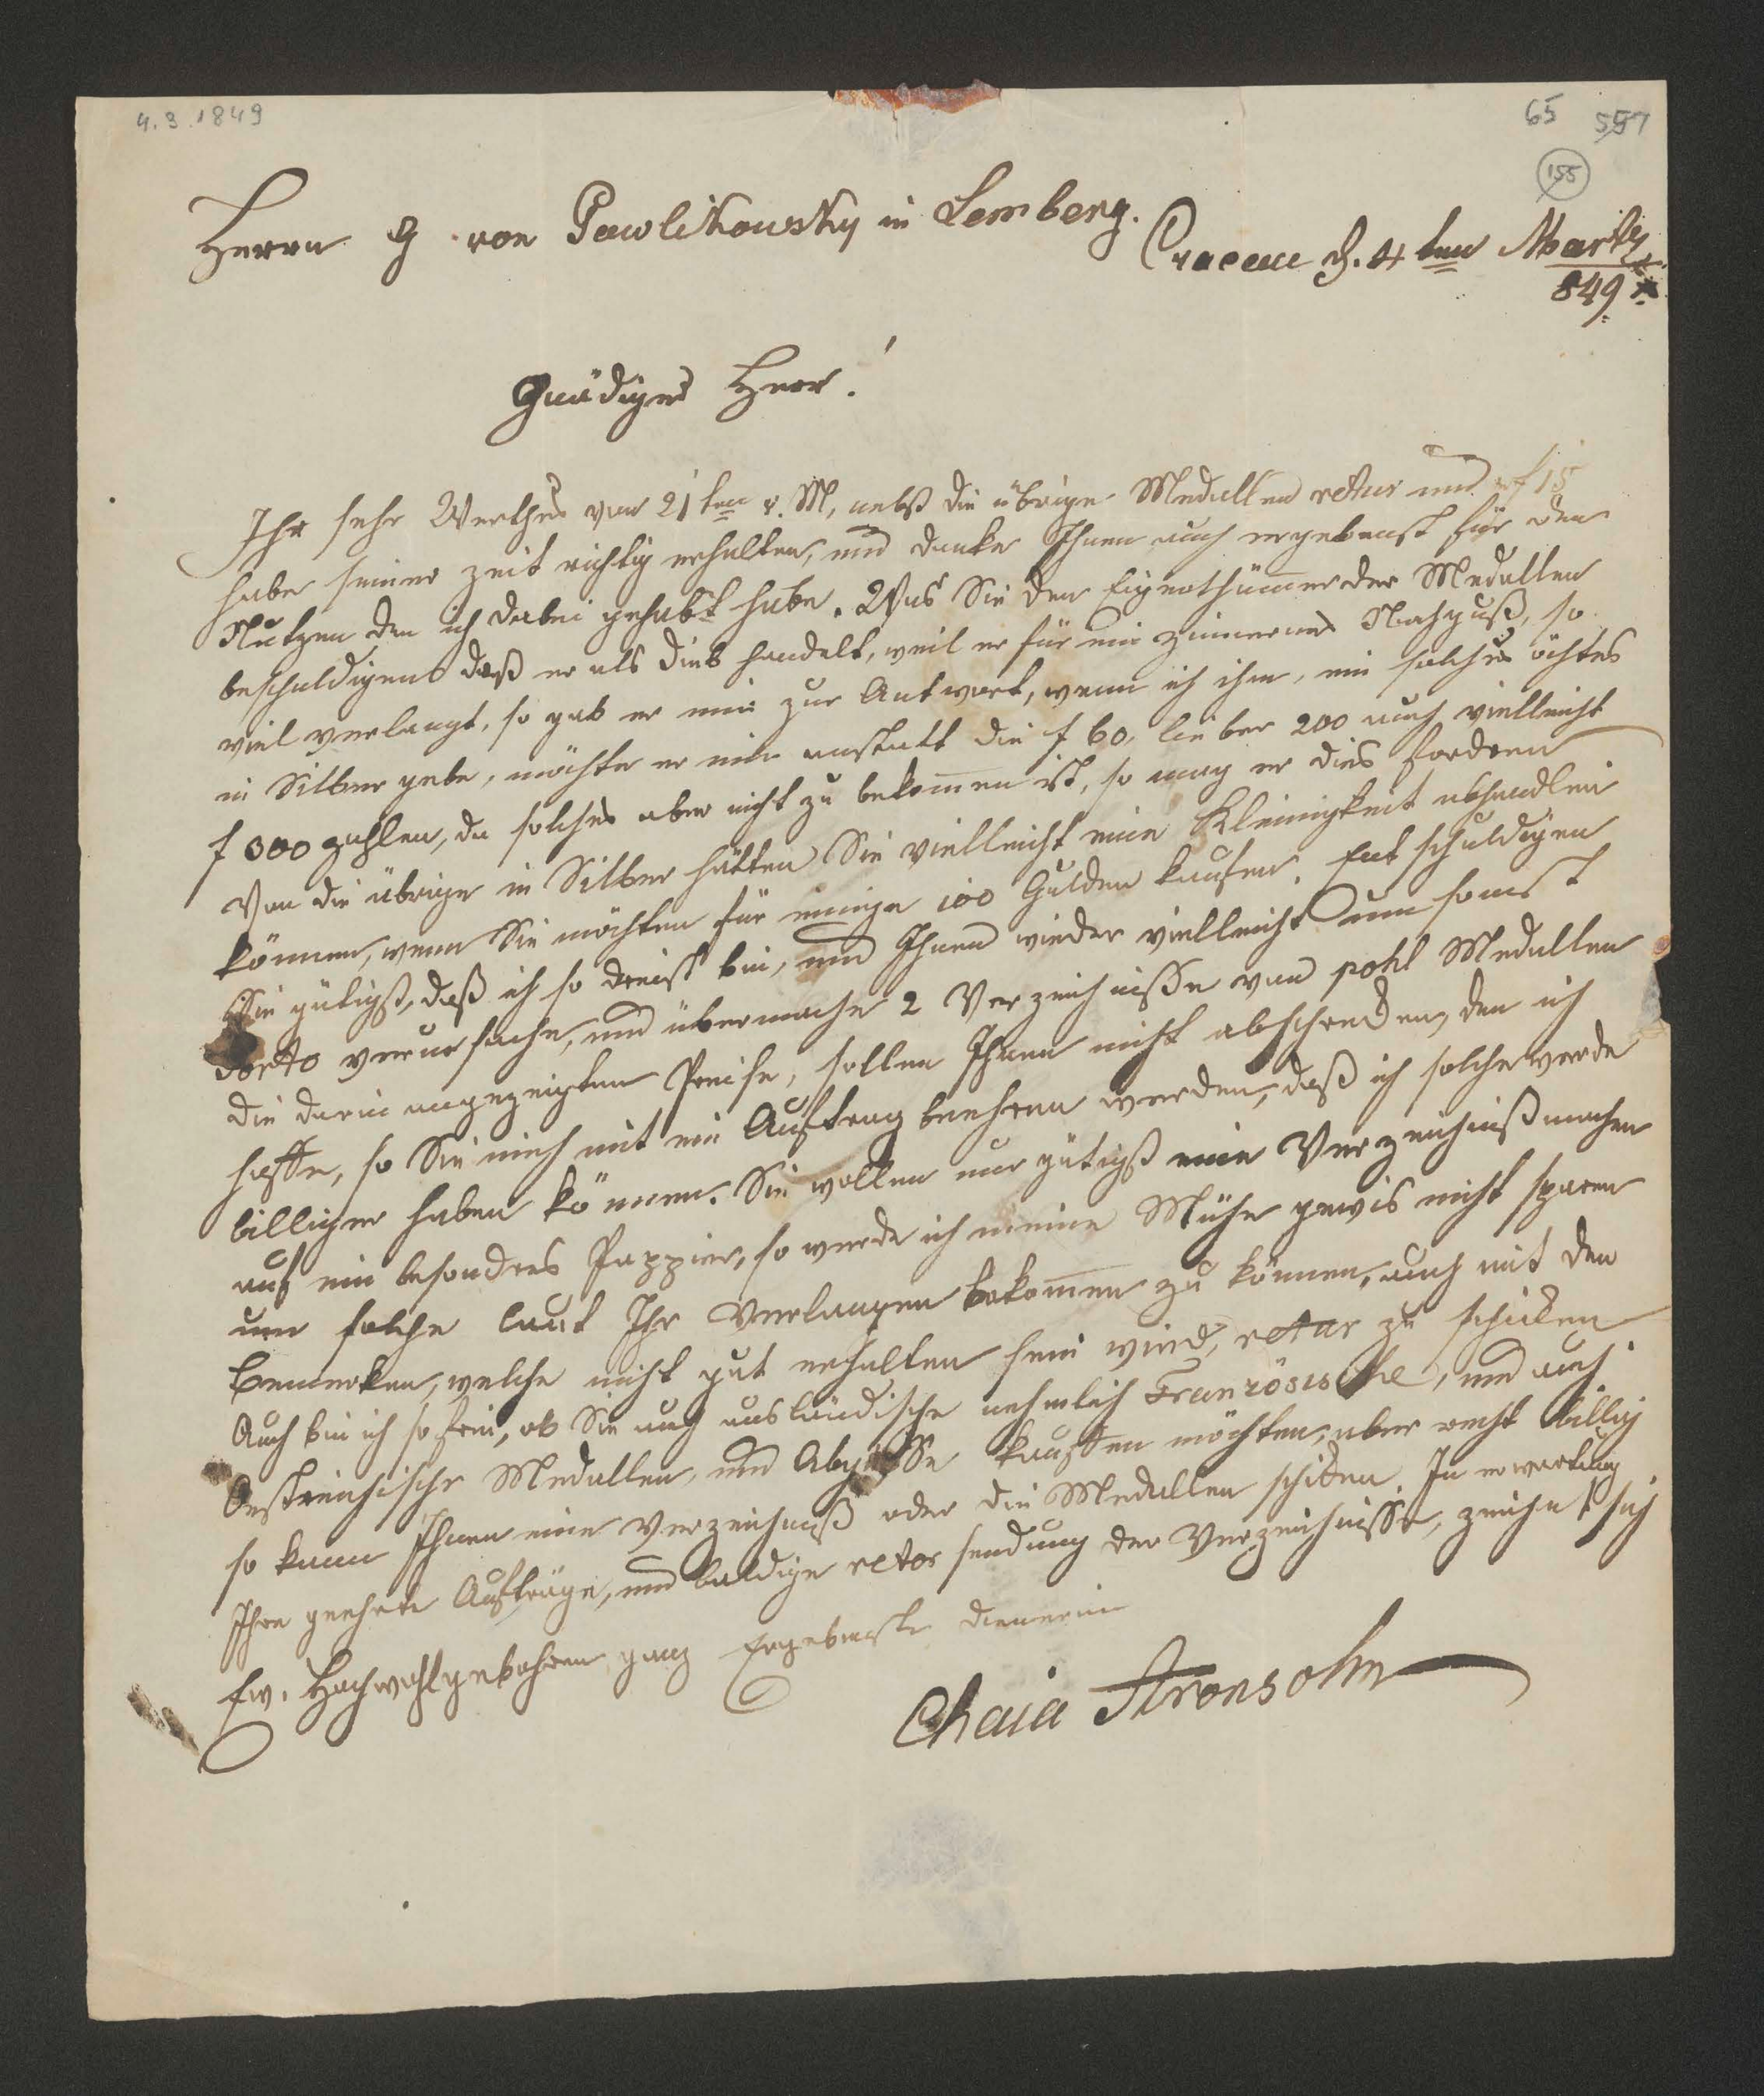 4.3.1849
65 557
155
Herrn G. von Pawlikowsky in Lemberg.
Cracau d. 4ten Martz
849
Gnädiger Herr!
Ihr sehr Werthes von 21ten v. M, nebst die übrige Medallen retur und f 15
habe seiner zeit richtig erhalten, und danke Ihnen auch ergebenst für den
Nutzen den ich dabei gehabt habe. Was Sie den Eigenthümer der Medallen
beschuldigen daß er als Dieb handelt, weil er für ein zinnernes Nachguß, so
viel verlangt, so gab er mir zur Antwort, wenn ich ihm, ein solches ächtes
in Silber gebe, möchte er mir anstatt die f 60, lieber 200 auch vielleicht
f 300 zahlen, da solches aber nicht zu bekom̅en ist, so mag er dies fordern
Von die übrige in Silber hätten Sie vielleicht eine Kleinigkeit abhandlen
können, wenn Sie möchten für einige 100 Gulden kaufen. Entschuldigen
Sie gütigst, daß ich so dreist bin, und Ihnen wieder vielleicht um sonst
Porto verursache, und übermache 2 Verzeichniße von pohl Medallen
die darin angezeigten Preise, sollen Ihnen nicht abschreken, den ich
hoffe, so Sie mich mit ein Auftrag beehren werden, daß ich solche werde
billiger haben können. Sie wollen nur gütigst eine Verzeichniß machen
auf ein besonderes Pappier, so werde ich meine Mühe gewis nicht sparen
um solche laut Ihr Verlangen bekom̅en zu können, auch mit den
Bemerken, welche nicht gut erhalten sein wird, retur zu schiken
Auch bin ich so frei, ob Sie auch ausländische nehmlich Französische, und auch
Oestreichische Medallen, und Abgüsse kauffen möchten, aber recht billig
so kann Ihnen eine Verzeichniß oder die Medallen schiken. In erwartung
Ihre geehrte Aufträge, und baldige retor sendung der Verzeichnisse, zeichnet sich
Ew. Hochwohlgebohren ganz Ergebenste Dienerin
Chaia Aronsohn